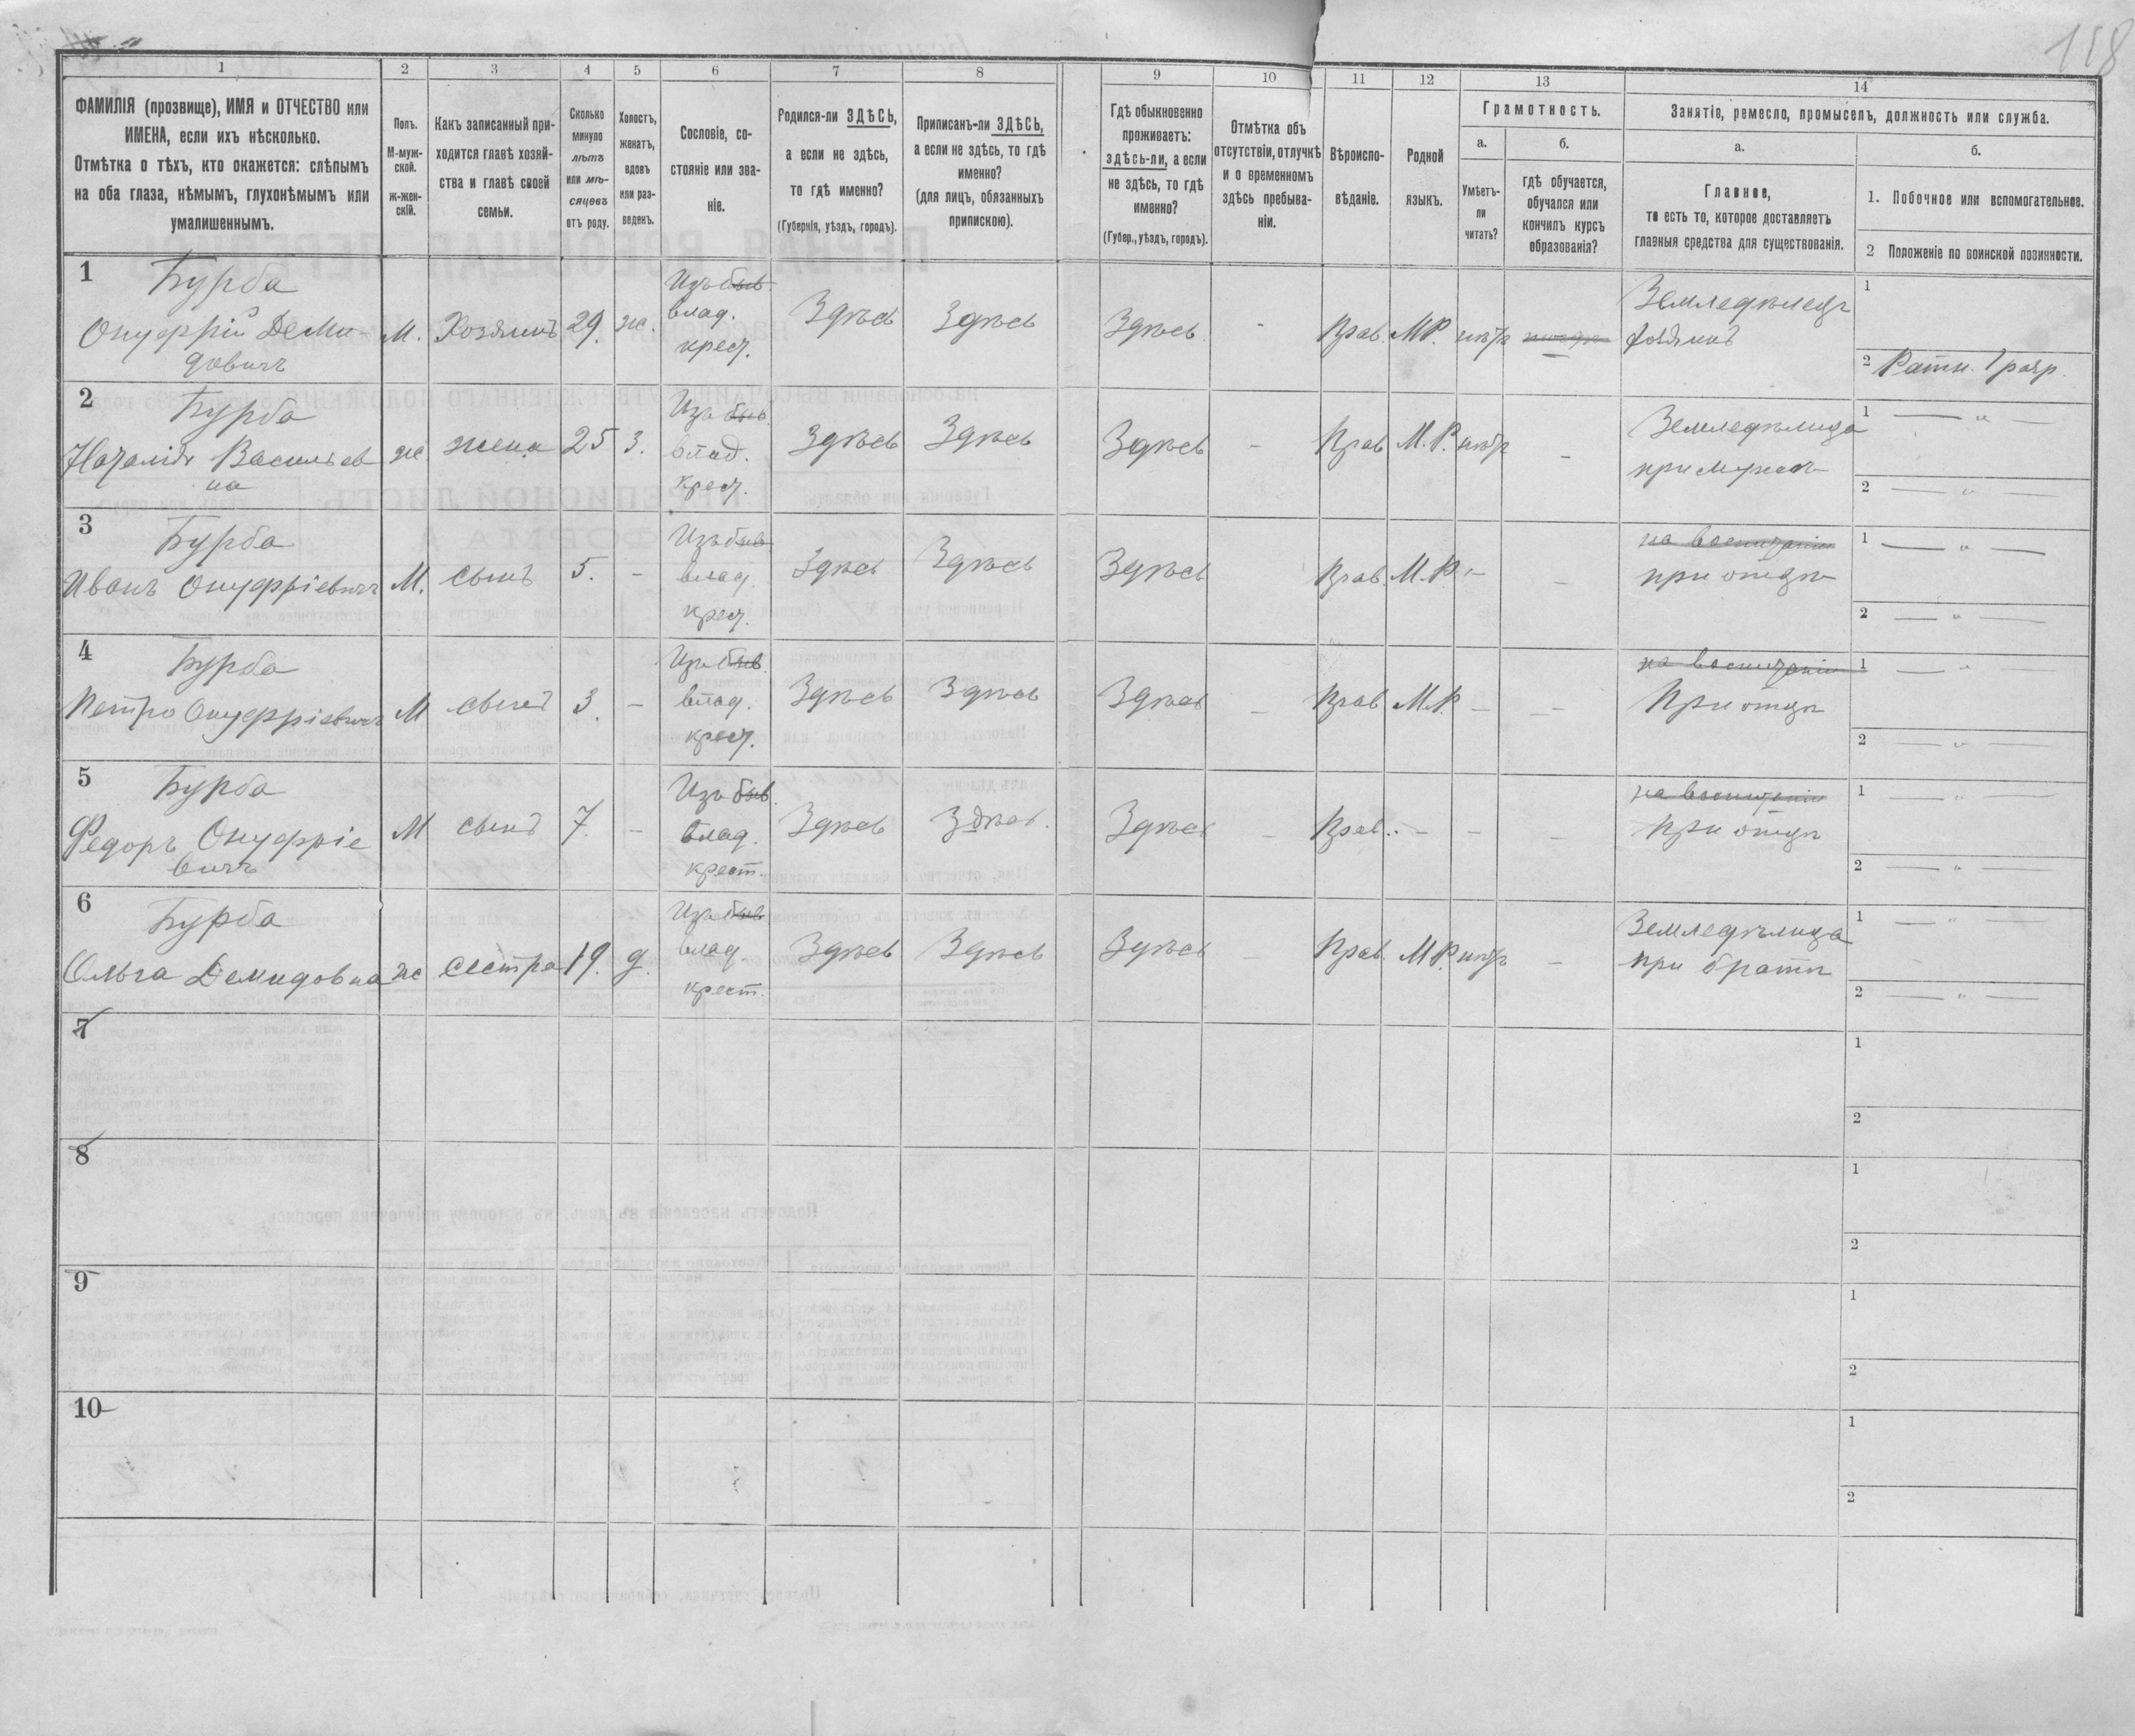 118
1
2
3
4
5
6
7
8
9
10
11
12
13
14
ФАМИЛІЯ (прозвище), ИМЯ и ОТЧЕСТВО или
ИМЕНА, если ихъ нѣсколько.
Отмѣтка о тѣхъ, кто окажется: слѣпымъ
на оба глаза, нѣмымъ, глухонѣмымъ или
умалишеннымъ.
Полъ.
М-муж-
ской.
ж-жен-
скій.
Какъ записанный при-
ходится главѣ хозяй-
ства и главѣ своей
семьи.
Сколько
минуло
лѣтъ
или мѣ-
сяцевъ
отъ роду.
Холостъ,
женатъ,
вдовъ
или раз-
веденъ.
Сословіе, со-
стояніе или зва-
ніе.
Родился-ли ЗДѢСЬ,
а если не здѣсь,
то гдѣ именно?
(Губернія, уѣздъ, городъ).
Приписанъ-ли ЗДѢСЬ,
а если не здѣсь, то гдѣ
именно?
(для лицъ, обязанныхъ
припискою).
Гдѣ обыкновенно
проживаетъ:
здѣсь-ли, а если
не здѣсь, то гдѣ
именно?
(Губер., уѣздъ, городъ).
Отмѣтка объ
отсутствіи, отлучкѣ
и о временномъ
здѣсь пребыва-
ніи.
Вѣроиспо-
вѣданіе.
Родной
языкъ.
Грамотность.
а.
Умѣетъ-
ли
читать?
б.
гдѣ обучается,
обучался или
кончилъ курсъ
образованія?
Занятіе, ремесло, промыселъ, должность или служба.
а.
Главное,
то есть то, которое доставляетъ
главныя средства для существованія.
б.
1. Побочное или вспомогательное.
2 Положеніе по воинской повинности.
1
Бурба
Онуфрій Деми-
довичъ
М.
Хозяинъ
29.
ж.
Изъ быв.
влад.
крест.
Здѣсь
Здѣсь
Здѣсь
-
Прав.
МР.
нѣтъ
Земледѣлецъ
хозяинъ
1
2 Ратн. 1 разр.
2
Бурба
Наталія Васильев
на
ж
жена
25
З.
Изъ быв.
влад.
крест.
Здѣсь
Здѣсь
Здѣсь
-
Прав
М.Р.
нѣтъ
-
Земледѣлица
при мужѣ
1 — " —
2 — " —
3
Бурба
Иванъ Онуфріевичъ
М.
сынъ
5.
-
Изъ быв
влад.
крест.
Здѣсь
Здѣсь
Здѣсь
Прав.
М.Р.
-
-
на воспитаніи
при отцѣ
1 — " —
2 — " —
4
Бурба
Петро Онуфріевичъ
М
сынъ
3.
-
Изъ быв.
влад.
крест.
Здѣсь
Здѣсь
Здѣсь
-
Прав
М.Р.
-
-
на воспитаніи
При отцѣ
1 — "
2 — " —
5
Бурба
Федоръ Онуфріе
вичъ
М
сынъ
7.
-
Изъ быв.
влад.
крест.
Здѣсь
Здѣсь.
Здѣсь
-
Прав.
-
-
-
на воспитаніи
При отцѣ
1 — " —
2 — " —
6
Бурба
Ольга Демидовна
ж
сестра
19.
д.
Изъ быв
влад.
крест.
Здѣсь
Здѣсь
Здѣсь
-
Прав.
МР.
нѣтъ
-
Земледѣлица
при братѣ
1 — " —
2 — " —
7
1
2
8
1
2
9
1
2
10
1
2